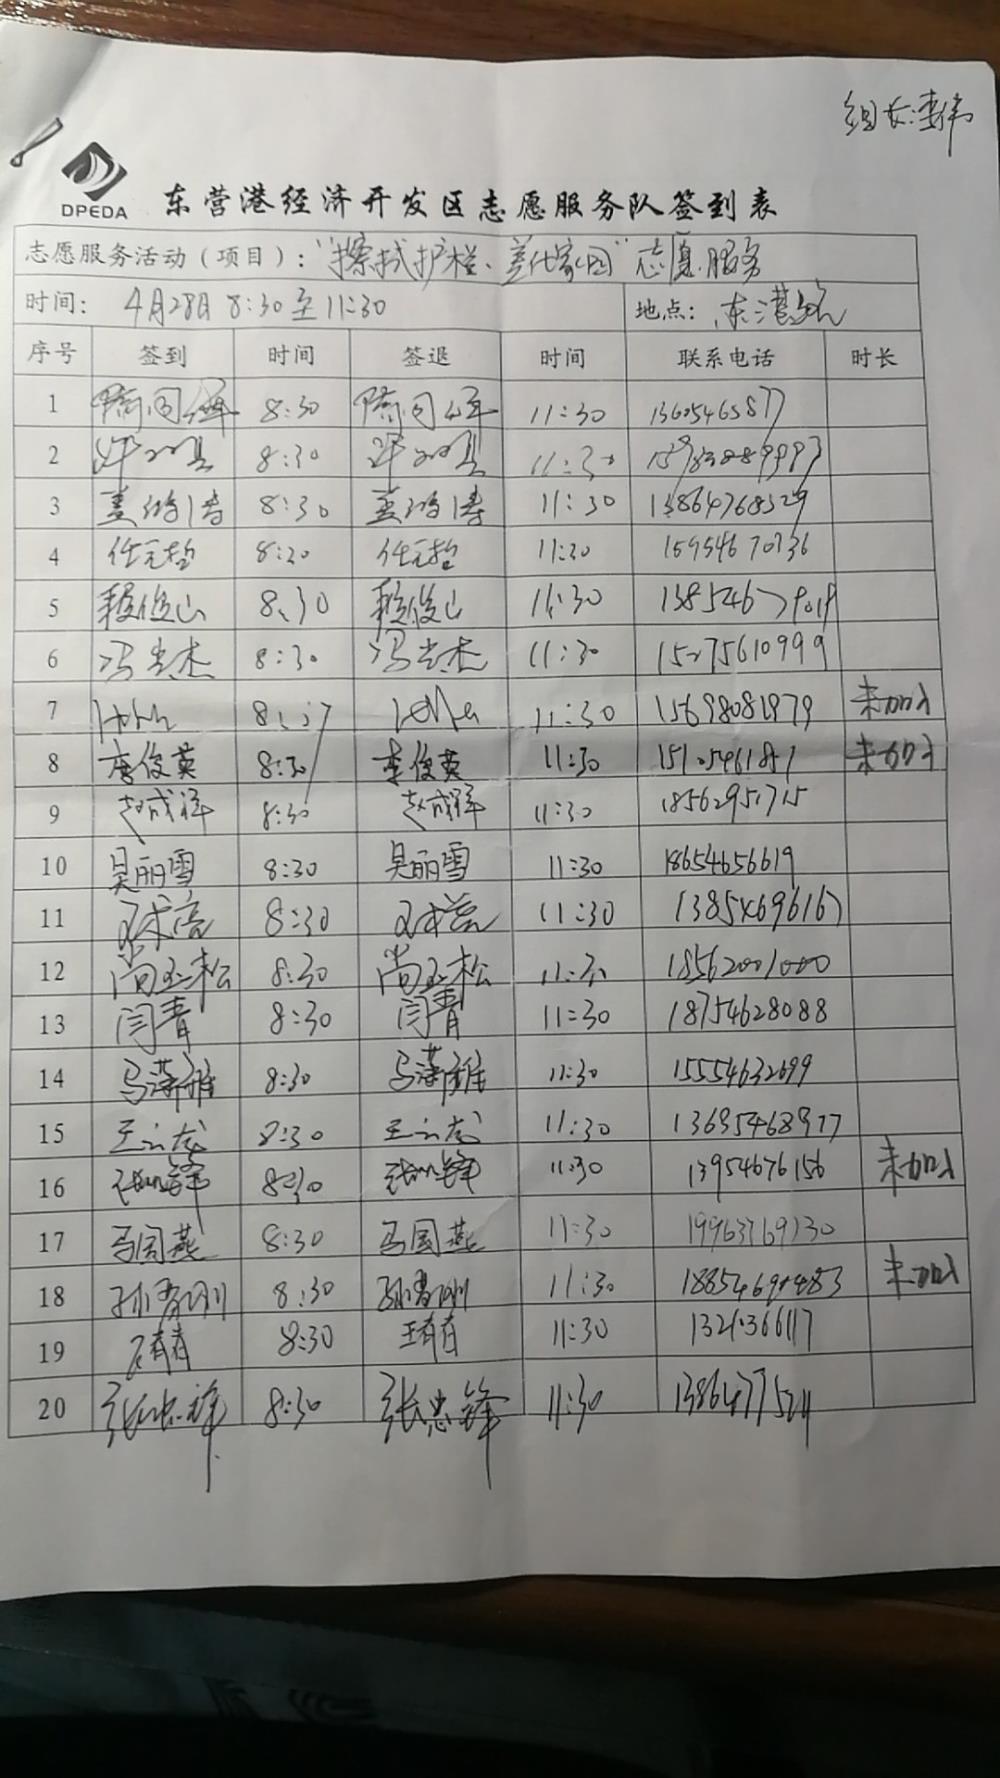 组长:李伟
DPEDA
东营港经济开发区志愿服务队签到表
志愿服务活动(项目):"擦拭护栏、美化家园"志愿服务
时间: 4月28日 8:30至11:30 地点: 东港路
序号 签到 时间 签退 时间 联系电话 时长
1 8:30 11:30 13605465877
2 8:30 11:30
3 8:30 11:30 13864768329
4 任元哲 8:30 任元哲 11:30 15954670736
5 程俊山 8:30 程俊山 11:30
6 冯志杰 8:30 冯志杰 11:30 15275610999
7 11:30 15698081979 未加入
8 李俊英 8:30 李俊英 11:30 未加入
9 赵成祥 8:30 赵成祥 11:30 18562951715
10 吴丽雪 8:30 吴丽雪 11:30 18654656619
11 8:30 11:30 13854696167
12 尚玉松 8:30 尚玉松 11:30 18562001000
13 闫青 8:30 闫青 11:30 18754628088
14 马潇雅 8:30 马潇雅 11:30 15554632699
15 王云龙 8:30 王云龙 11:30 13695468977
16 8:30 11:30 13954676156 未加入
17 马国燕 8:30 马国燕 11:30 19963769730
18 8:30 11:30 未加入
19 8:30 11:30
20 张忠锋 8:30 张忠锋 11:30 13864775211